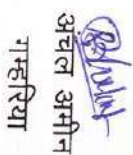 अंचल अमीन
गम्हरिया